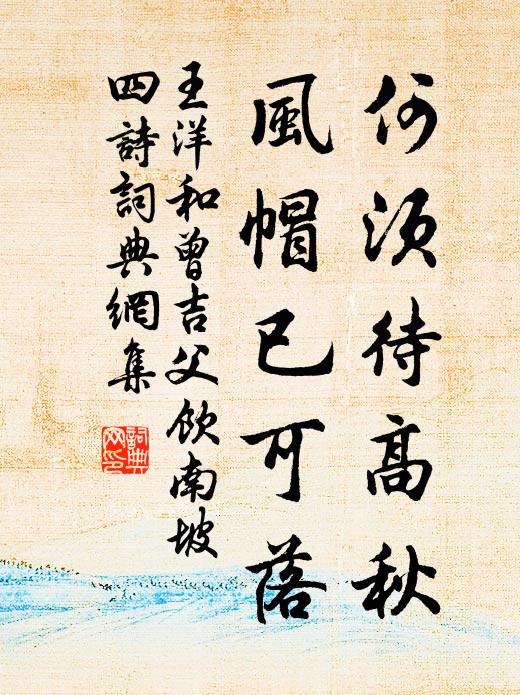 何須待高秋
風帽已可落
王洋和曾吉父飲南坡
四詩詞典網集
詞典
網印